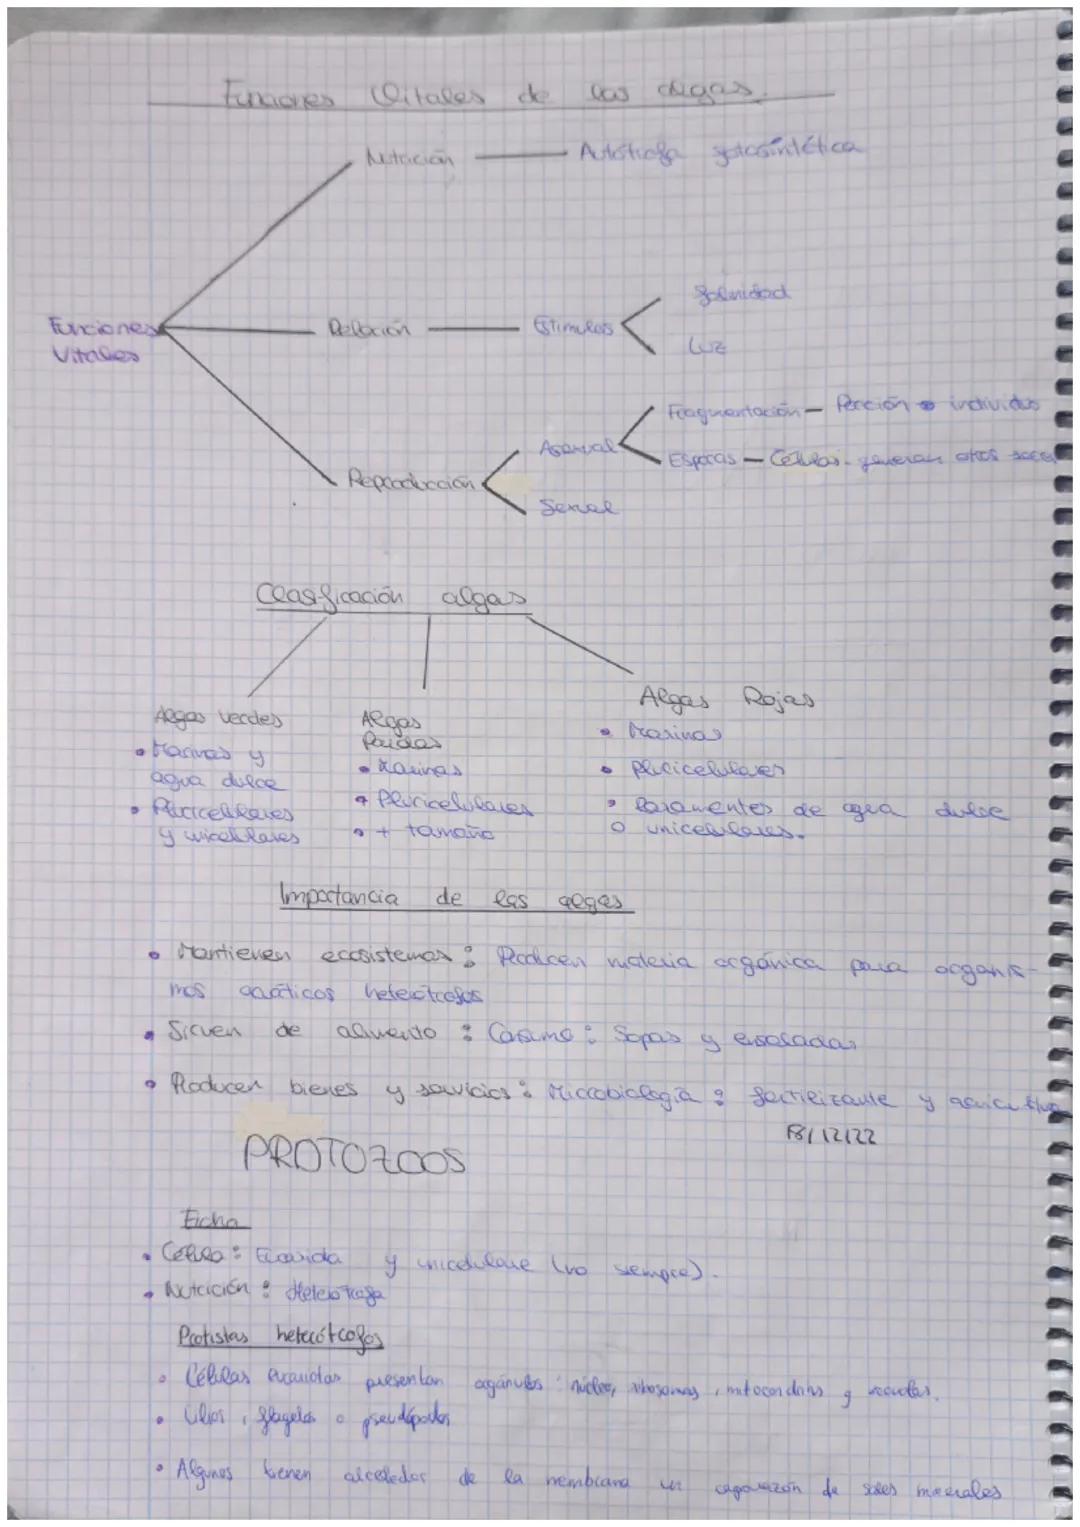 Funciones Vitales de las algas.
Nutrición — Autótrofa fotosintética
Funciones
Vitales
Relación — Estímulos
Salinidad
Luz
Reproducción
Asexual
Fragmentación — Porción → individuo
Esporas — Células generan otros
Sexual
Clasificación algas
Algas verdes
• Marinas y
agua dulce
• Pluricelulares
y unicelulares
Algas
Pardas
• Marinas
• Pluricelulares
• + tamaño
Algas Rojas
• Marinas
• pluricelulares
• Raramentes de agua dulce
o unicelulares.
Importancia de las algas
• Mantienen ecosistemas: Producen materia orgánica para organis-
mos acuáticos heterótrofos
• Sirven de alimento: Consumo: Sopas y ensaladas
• Producen bienes y servicios: Microbiología: fertilizante y
/12/22
PROTOZOOS
Ficha
• Célula: Eucariota y unicelulare (no siempre).
• Nutrición: Heterótrofa
Protistas heterótrofos
• Células eucariotas presentan orgánulos: núcleo, ribosomas, mitocondrias y vacuolas.
• Cilios, flagelos o pseudópodos
• Algunos tienen alrededor de la membrana un caparazón de sales minerales